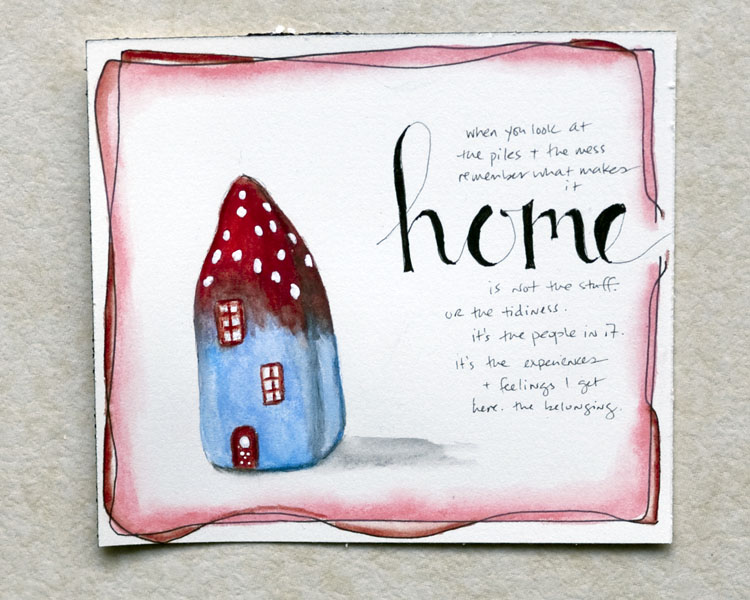 when you look at
the piles + the mess
remember what makes
it
home
is not the stuff.
or the tidiness.
it's the people in it.
it's the experiences
+ feelings I get
here. the belonging.